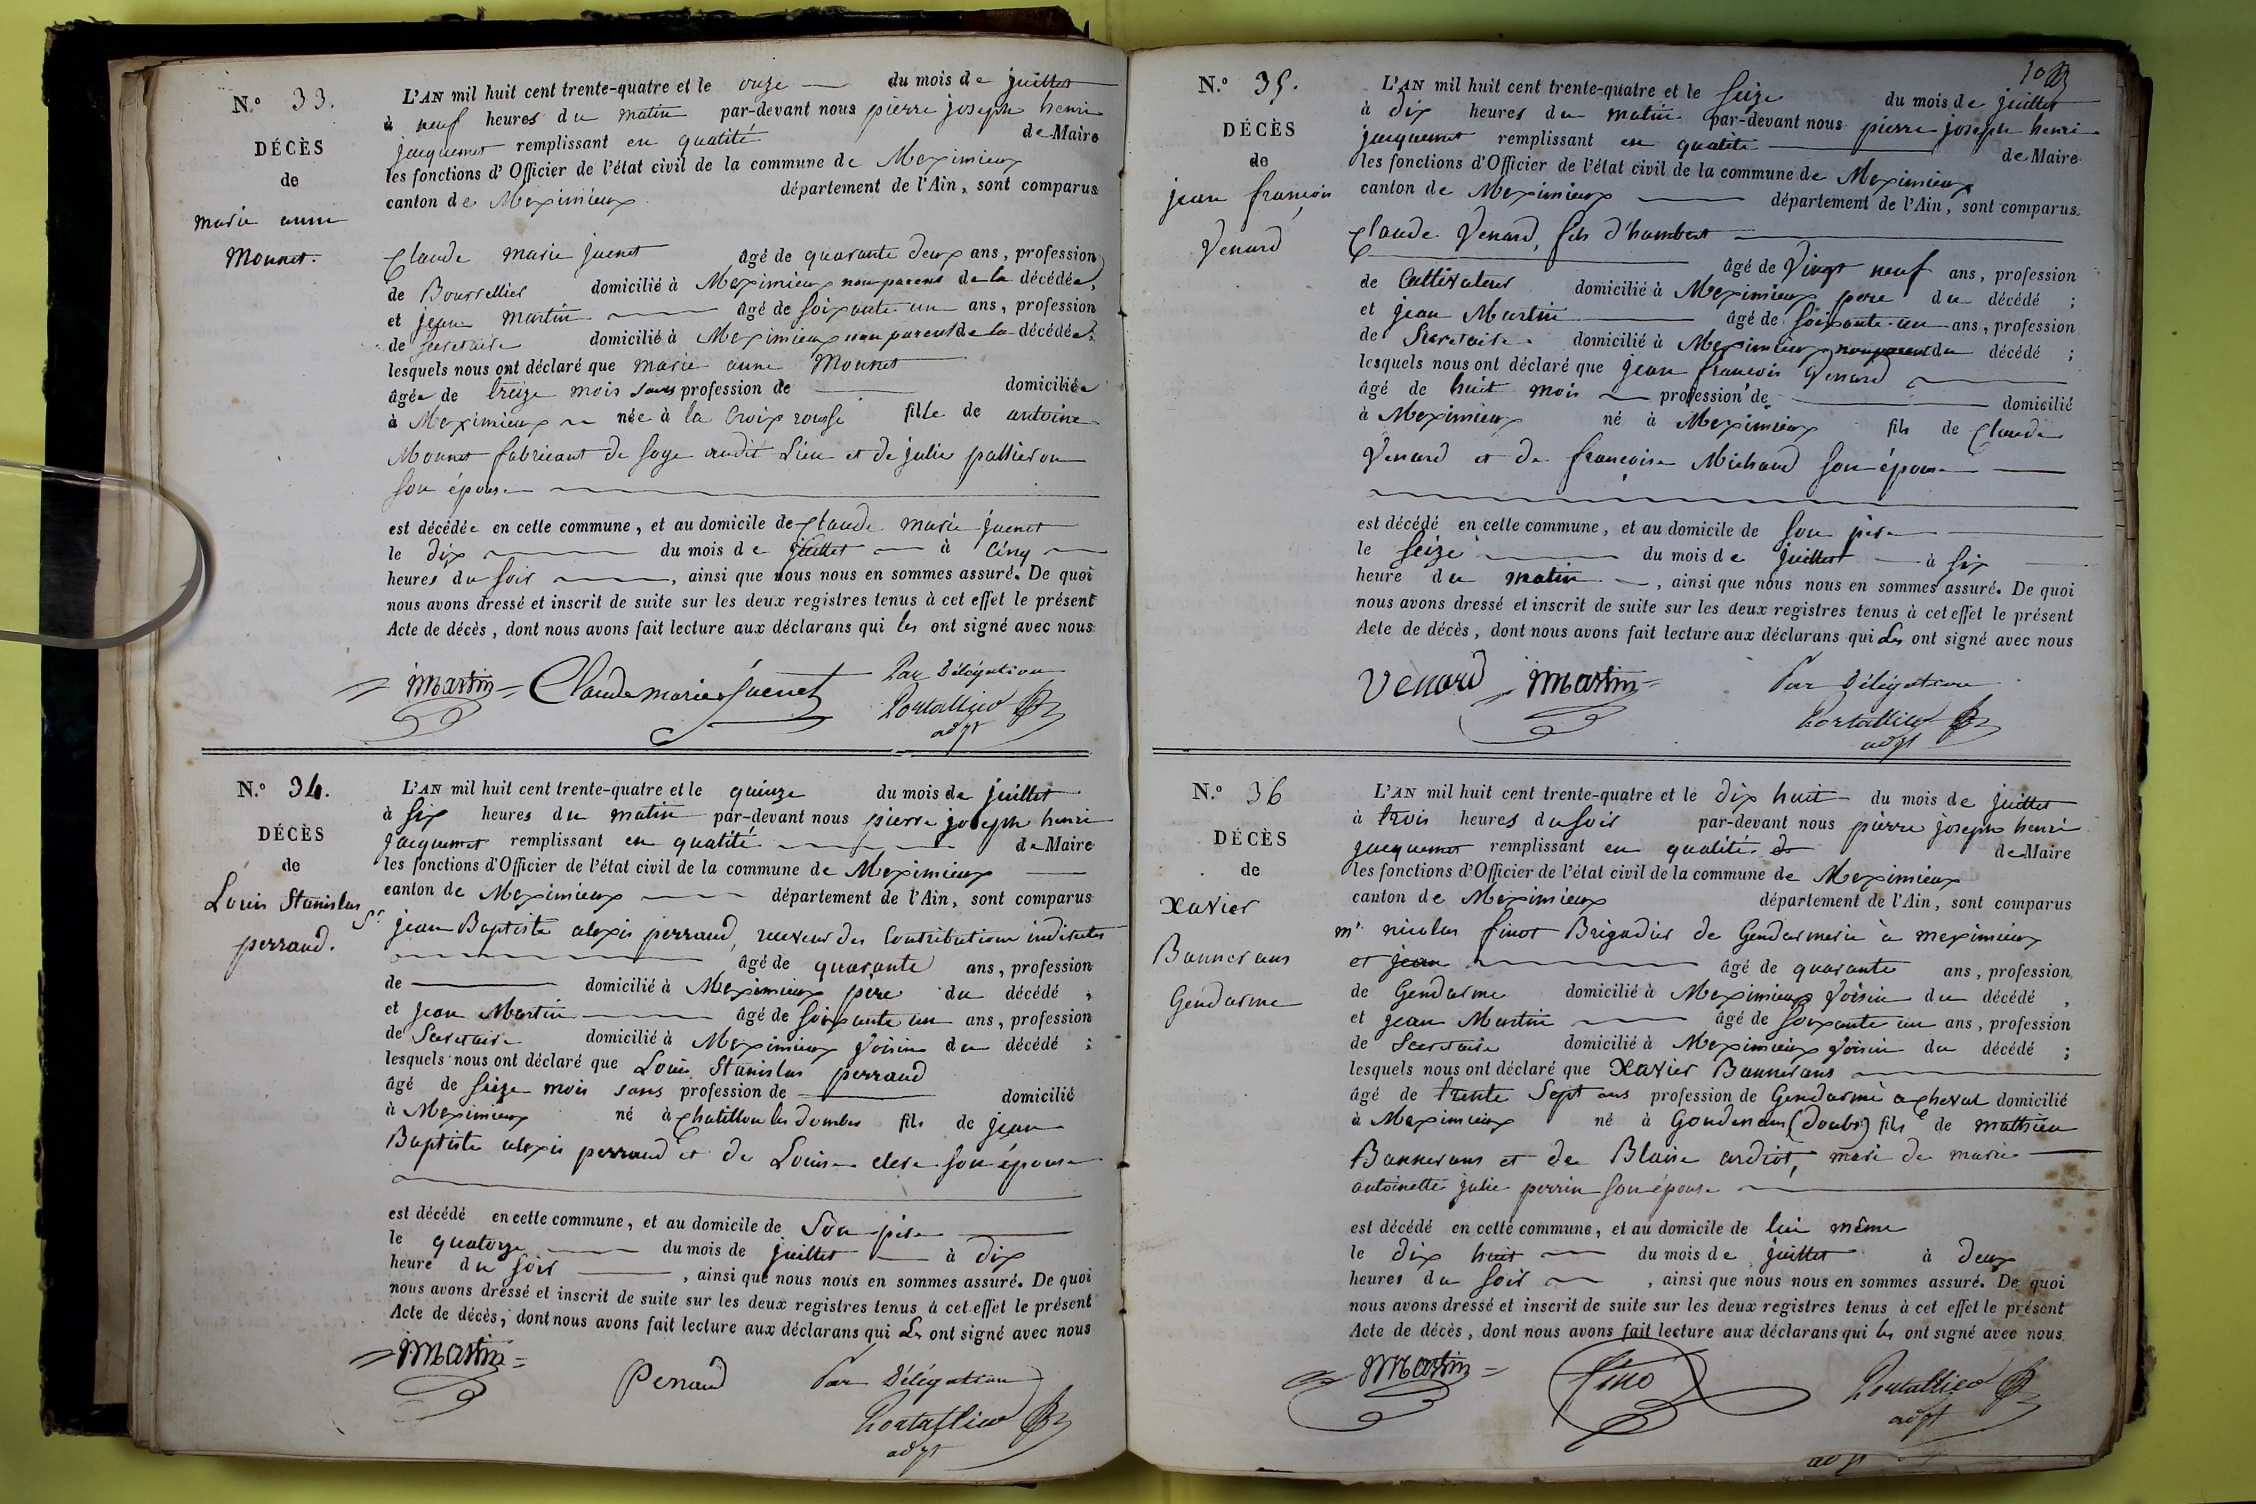 N.° 33.
DÉCÈS
de
marie anne
Monnet.
L'AN mil huit cent trente-quatre et le onze du mois de juillet
à neuf heures du matin par-devant nous pierre joseph henri
jacquemet remplissant en qualité de Maire
les fonctions d'Officier de l'état civil de la commune de Meximieux
canton de Meximieux département de l'Ain, sont comparus
Claude marie juenet âgé de quarante deux ans, profession
de Bourrellier domicilié à Meximieux non parent de la décédée,
et jean martin âgé de soixante un ans, profession
de secretaire domicilié à Meximieux non parent de la décédée;
lesquels nous ont déclaré que marie anne Monnet
âgée de treize mois sans profession de domiciliée
à Meximieux née à la Croix rousse fille de antoine
Monnet fabricant de soye audit Lieu et de julie
son épouse
est décédée en cette commune, et au domicile de Claude marie juenet
le dix du mois de juillet à cinq
heures du soir, ainsi que nous nous en sommes assuré. De quoi
nous avons dressé et inscrit de suite sur les deux registres tenus à cet effet le présent
Acte de décès, dont nous avons fait lecture aux déclarans qui les ont signé avec nous
Martin Claude marie Juenet Par Délégation
adjt
N.° 34.
DÉCÈS
de
Louis Stanislas
perraud.
L'AN mil huit cent trente-quatre et le quinze du mois de juillet
à six heures du matin par-devant nous pierre joseph henri
jacquemet remplissant en qualité de Maire
les fonctions d'Officier de l'état civil de la commune de Meximieux
canton de Meximieux département de l'Ain, sont comparus
Sr. jean Baptiste alexis perraud, receveur des Contributions indirectes
âgé de quarante ans, profession
de domicilié à Meximieux père du décédé,
et jean Martin âgé de soixante un ans, profession
de Secretaire domicilié à Meximieux voisin du décédé;
lesquels nous ont déclaré que Louis Stanislas perraud
âgé de seize mois sans profession de domicilié
à Meximieux né à Chatillon les dombes fils de jean
Baptiste alexis perraud et de Louise son épouse
est décédé en cette commune, et au domicile de Son père
le quatorze du mois de juillet à dix
heure du soir, ainsi que nous nous en sommes assuré. De quoi
nous avons dressé et inscrit de suite sur les deux registres tenus à cet effet le présent
Acte de décès, dont nous avons fait lecture aux déclarans qui Les ont signé avec nous
Martin Perraud Par Délégation
adjt
N.° 35.
DÉCÈS
de
jean françois
Venard
10
L'AN mil huit cent trente-quatre et le seize du mois de juillet
à dix heures du matin par-devant nous pierre joseph henri
jacquemet remplissant en qualité de Maire
les fonctions d'Officier de l'état civil de la commune de Meximieux
canton de Meximieux département de l'Ain, sont comparus
Claude Venard, fils d'humbert
âgé de vingt neuf ans, profession
de Cultivateur domicilié à Meximieux pere du décédé;
et jean Martin âgé de soixante un ans, profession
de Secretaire domicilié à Meximieux non parent du décédé;
lesquels nous ont déclaré que jean françois Venard
âgé de huit mois profession de domicilié
à Meximieux né à Meximieux fils de Claude
Venard et de francoise Michaud son épouse
est décédé en cette commune, et au domicile de son père
le seize du mois de juillet à six
heure du matin, ainsi que nous nous en sommes assuré. De quoi
nous avons dressé et inscrit de suite sur les deux registres tenus à cet effet le présent
Acte de décès, dont nous avons fait lecture aux déclarans qui Les ont signé avec nous
Venard Martin Par Délégation
adjt
N.° 36
DÉCÈS
de
Xavier
Bannerans
Gendarme
L'AN mil huit cent trente-quatre et le dix huit du mois de juillet
à trois heures du soir par-devant nous pierre joseph henri
jacquemet remplissant en qualité de de Maire
les fonctions d'Officier de l'état civil de la commune de Meximieux
canton de Meximieux département de l'Ain, sont comparus
mr. nicolas finot Brigadier de Gendarmerie à meximieux
et jean âgé de quarante ans, profession
de Gendarme domicilié à Meximieux voisin du décédé,
et jean Martin âgé de soixante un ans, profession
de Secretaire domicilié à Meximieux voisin du décédé;
lesquels nous ont déclaré que Xavier Bannerans
âgé de trente Sept ans profession de Gendarme à Cheval domicilié
à Meximieux né à (doubs) fils de mathieu
Bannerans et de Blaise ardiot, mari de marie
antoinette julie perrin son épouse
est décédé en cette commune, et au domicile de lui même
le dix huit du mois de juillet à deux
heures du soir, ainsi que nous nous en sommes assuré. De quoi
nous avons dressé et inscrit de suite sur les deux registres tenus à cet effet le présent
Acte de décès, dont nous avons fait lecture aux déclarans qui les ont signé avec nous
Martin
adjt
adjt